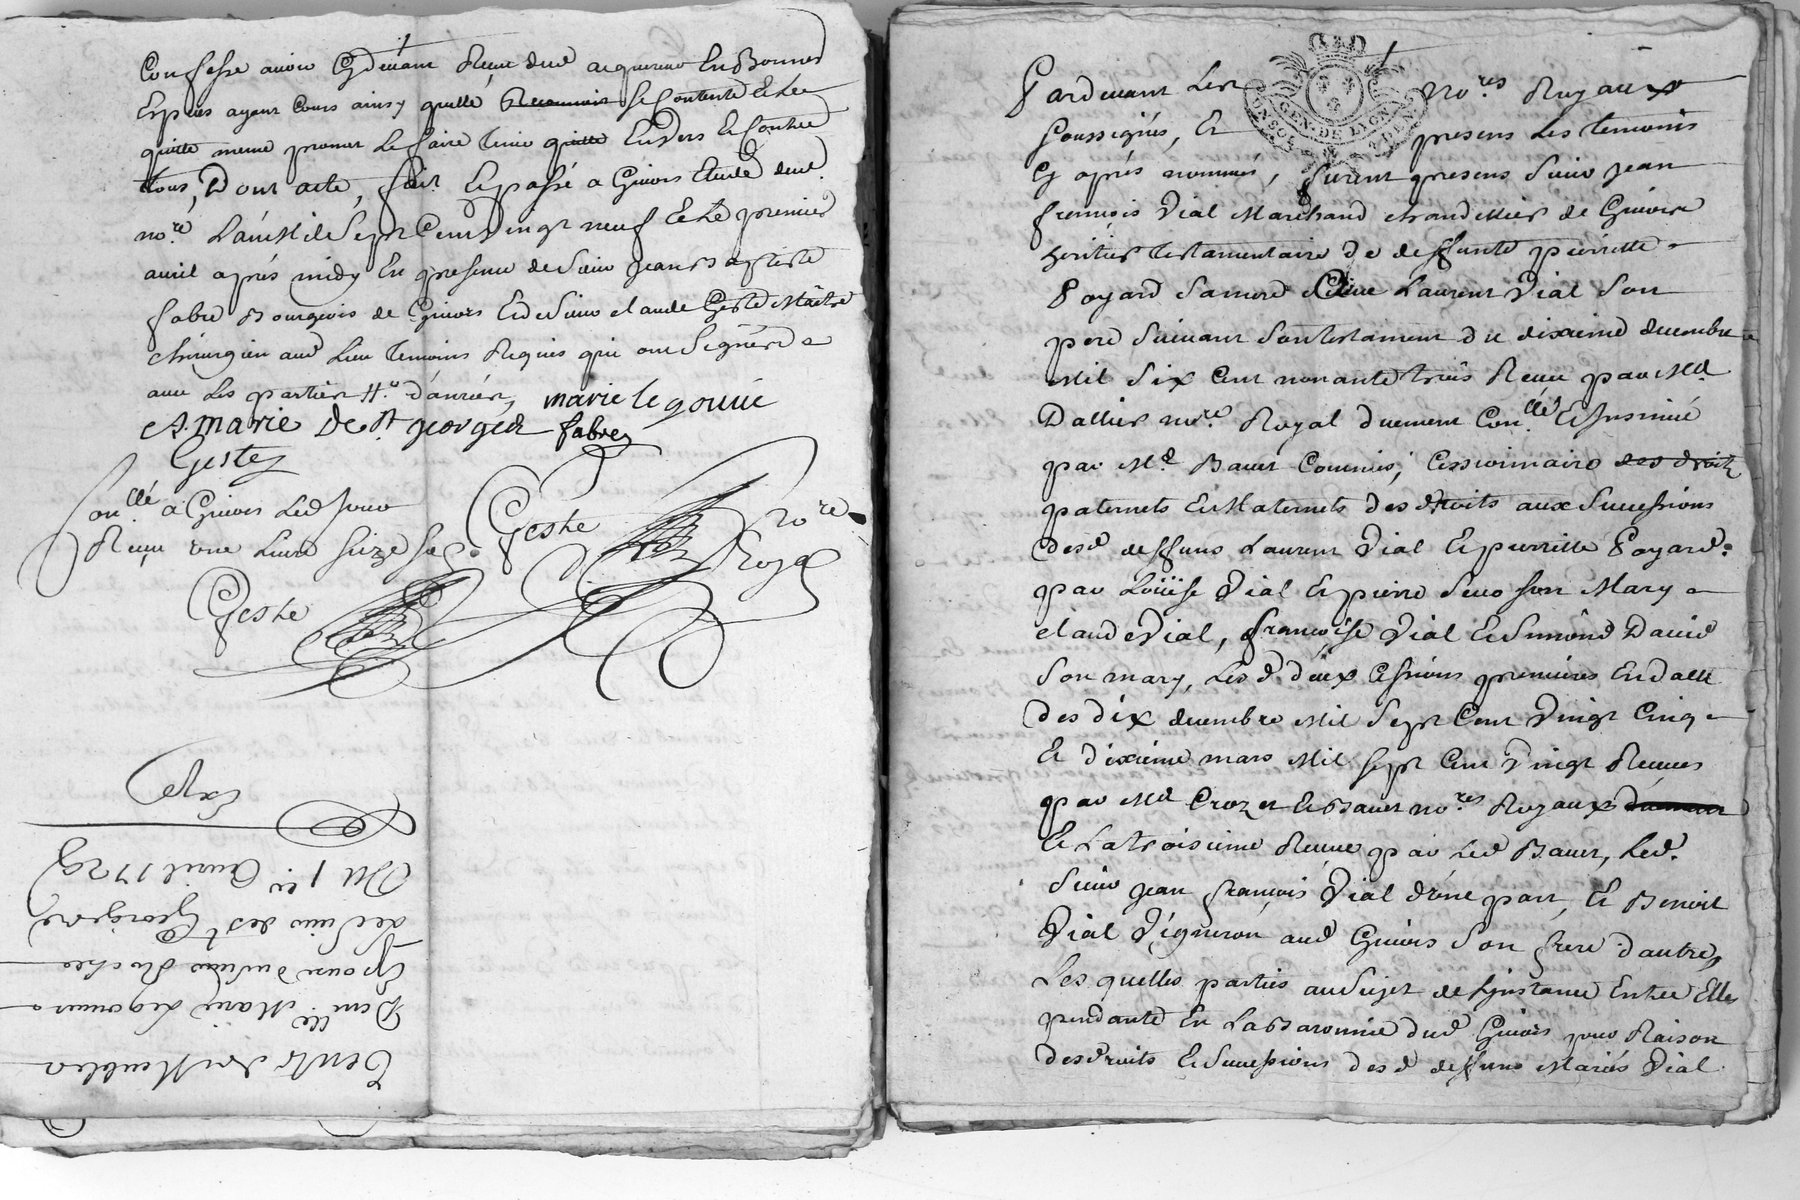 Confesse avoir Cydevant Receu dud acquereur En Bonnes
Especes ayant Cours ainsy quelle Reconnoit se Contente Et Le
quitte meme promet Le faire tenir quitte Envers Et Contre
tous, Dont acte, fait Et passé a Givors Etude dud.
no.re L'an Mil Sept Cent Vingt neuf Et Le premier
avril aprés midy En presence de Sieur Jean Baptiste
fabre Bourgeois de Givors Et de Sieur Claude Geste Maitre
chirurgien aud Lieu temoins Requis qui ont Signé
avec Les parties
marie le gouvé
A. marie De st georges fabre
Geste
Con.llé a Givors Led Jour
Receu une Livre seize s
Geste no.re Royal
Geste
Expé
Du 1er Avril 1729
de Sieur de st Georges
Epoux du Sieur Rochet
Dem.lle Marie Legouvé
Vente de Meubles
Pardevant Les no.res Royaux
Soussignés, Et presens Les temoins
Cy aprés nommés, furent presens Sieur Jean
françois Vial Marchand chandellier de Givors
heritier testamentaire De deffunte pierrette
Poyard Sa mere Laurent Vial Son
pere Suivant Son testament du dixieme decembre
Mil Six Cent nonante trois Receu par Me
Dallier no.re Royal duement Con.llé Et Insinué
par Me Bavet Commis, Cessionnaire des droits
paternels Et Maternels Des droits aux Successions
desd deffuns Laurent Vial Et pierrette Poyard
par Loüise Vial Et pierre Seve son Mary
claude Vial, françoise Vial Et Simond David
Son mary, Lesd. deux Cessions premieres En datte
des dix decembre Mil Sept Cent Vingt Cinq
Et dixieme mars Mil Sept Cent Vingt Receues
par Me Crozet Et Bavet no.res Royaux
Et La troisieme Receue par Led Bavet, Led.
Sieur Jean françois Vial d'une part, Et Benoit
Vial Vigneron aud Givors Son frere d'autre,
Les quelles parties au Sujet de L'instance Entre Elles
pendante En La Baronnie dud Givors pour Raison
des droits Et Successions desd deffuns Mariés Vial